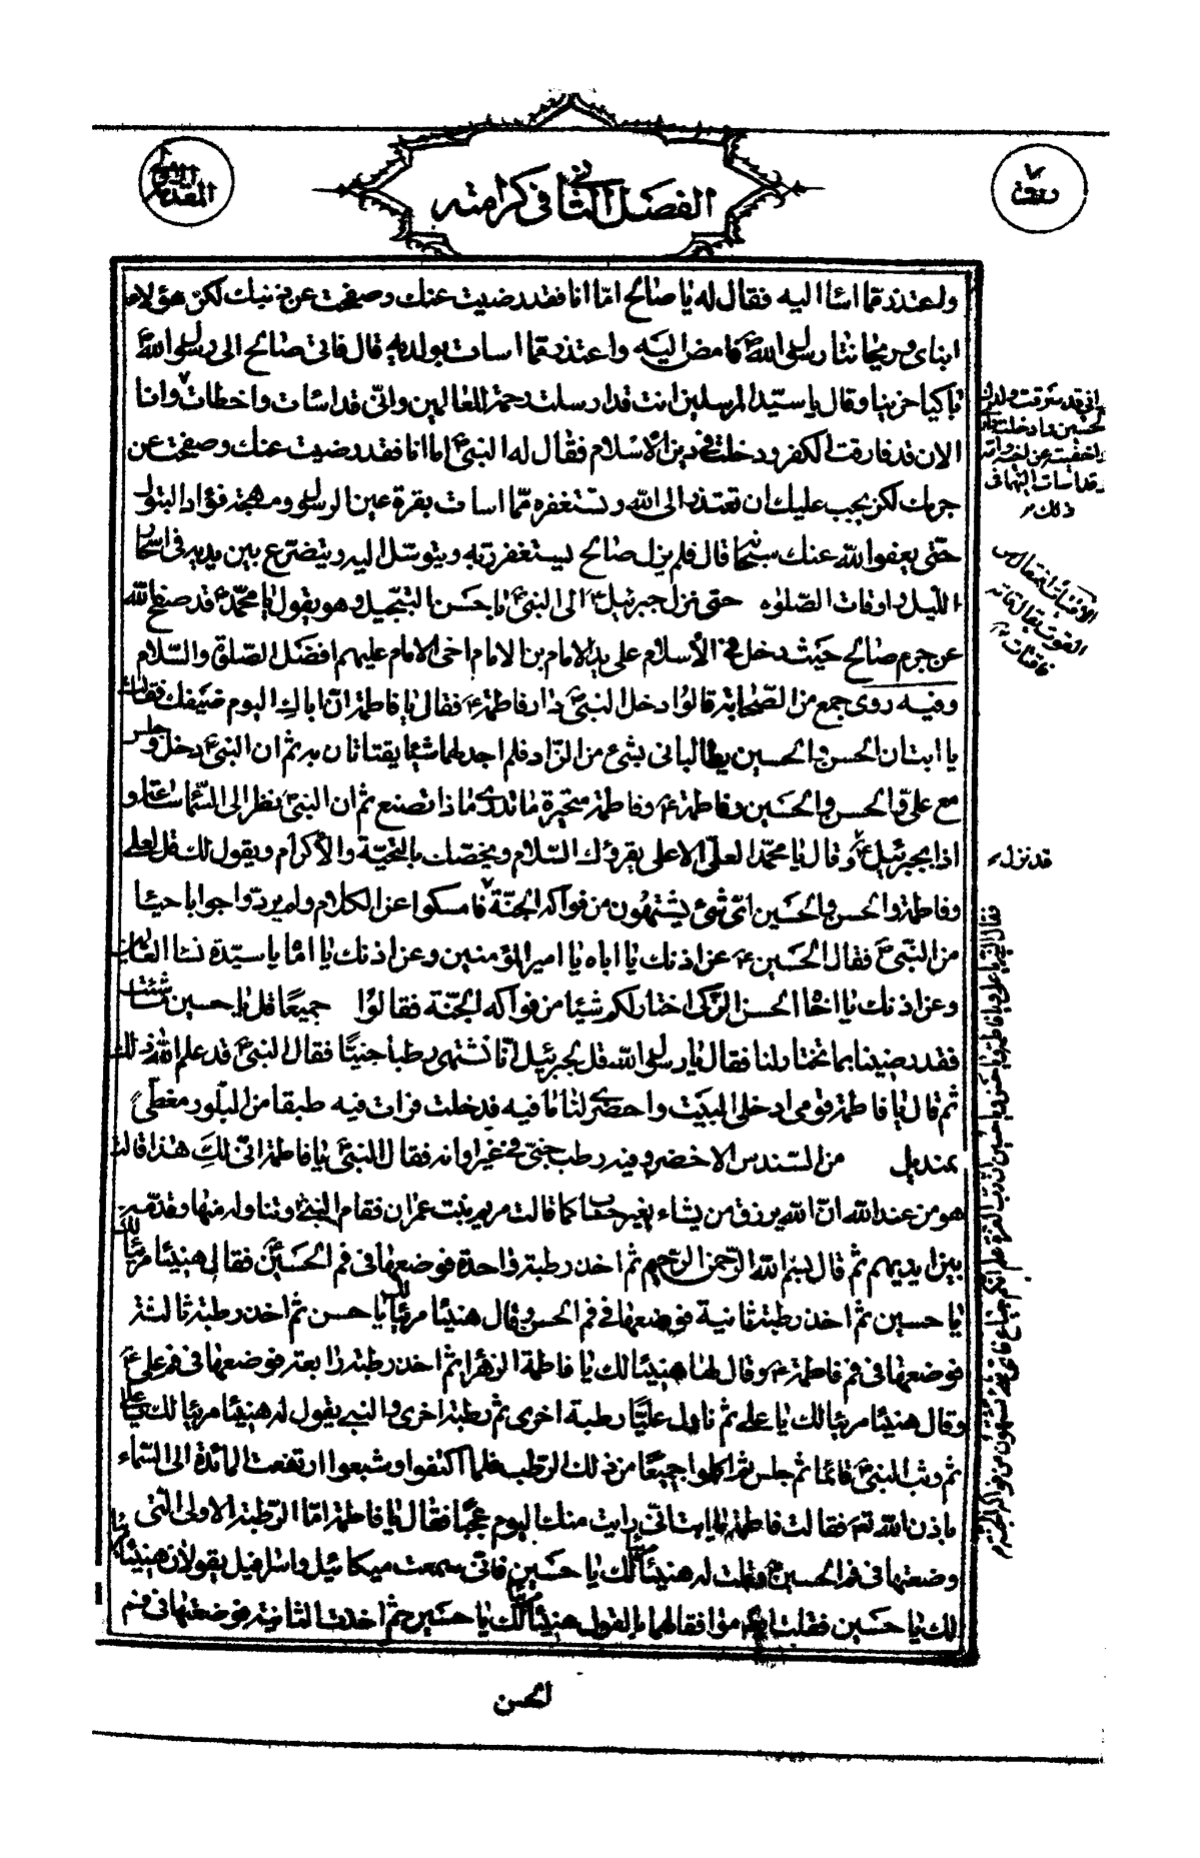 المقدمة الاولى
الفصل الثانى فى كرامته
واعتذر مما اسأ اليه فقال له يا صالح امّا انا فقد رضيت عنك وصفحت عن ذنبك لكن هؤلاء
ابناى وريحانتا رسول الله ص فامض اليه واعتذر مما اسات بولديه قال فاتى صالح الى رسول الله ص
باكيا حزينا وقال يا سيّد المرسلين انت قد ارسلت رحمة للعالمين وانّى قد اسات واخطات وانا
الان قد فارقت الكفر ودخلت فى دين الاسلام فقال له النبى ص اما انا فقد رضيت عنك وصفحت عن
جرمك لكن يجب عليك ان تعتذر الى الله وتستغفره ممّا اسات بقرة عين الرسول ومهجة فؤاد البتول
حتّى يعفوا الله عنك سبحانه قال فلم يزل صالح يستغفر ربه ويتوسّل اليه ويتضرّع بين يديه فى اسحار
الليل واوقات الصّلوه حتى نزل جبرئيل ع الى النبى ص باحسن التبجيل وهو يقول يا محمّد ص قد صفح الله
عن جرم صالح حيث دخل فى الاسلام على يد الامام بن الامام اخى الامام عليهم افضل الصّلوة والسّلام
وفيه روى جمع من الصّحابة قالوا دخل النبى ص دار فاطمة ع فقال يا فاطمة انّ اباك اليوم ضيفك فقالت
يا ابت ان الحسن والحسين يطالبانى بشئ من الزّاد فلم اجد لهما شيئا يقتاتان به ثم ان النبى ص دخل وجلس
مع علىّ والحسن والحسين وفاطمة ع وفاطمة متحيرة ما تدرى ماذا تصنع ثم ان النبى ص نظر الى السّماء ساعة و
اذا بجبرئيل ع وقال يا محمّد العلىّ الاعلى يقرؤك السّلام ويخصّك بالتحيّة والاكرام ويقول لك قل لعلى
وفاطمة والحسن والحسين اىّ شئ يشتهون من فواكه الجنّة فامسكوا عن الكلام ولم يردّوا جوابا حيئا
من النّبى ص فقال الحسين ع عن اذنك يا اباه يا امير المؤمنين وعن اذنك يا امّا يا سيّدة نسا العالمين
وعن اذنك يا اخا الحسن الزكى اختار لكم شيئا من فواكه الجنّة فقالوا جميعًا قل يا حسين ما شئت
فقد رضينا بما تختار لنا فقال يا رسول الله قل لجبرئيل انّا نشتهى رطبا جنيّا فقال النبى ص قد علم الله ذلك
ثم قال يا فاطمة قومى ادخلى البيت واحضرى لنا ما فيه فدخلت فرات فيه طبقا من البلّور مغطّى
بمنديل من السّندس الاخضر وفيه رطب جنىّ فى غير اوانه فقال النبى ص يا فاطمة انّى لكِ هذا قالت
هو من عند الله انّ الله يرزق من يشاء بغير حساب كما قالت مريم بنت عمران فقام النبى ص وتناوله منها وقدّمه
بين ايديهم ثم قال بسم الله الرّحمن الرّحيم ثم اخذ رطبة واحدة فوضعها فى فم الحسين ع فقال هنيئا مريئا لك
يا حسين ثم اخذ رطبة ثانية فوضعها فى فم الحسن وقال هنيئا مريئا لك يا حسن ثم اخذ رطبة ثالثة
فوضعها فى فم فاطمة ع وقال لها هنيئا لك يا فاطمة الزهرا ثم اخذ رطبة رابعة فوضعها فى فم على ع
وقال هنيئا مريئا لك يا على ثم ناول عليّا رطبة اخرى ثم رطبة اخرى والنبى يقول له هنيئا مريئا لك يا على
ثم وثب النبى ص قائما ثم جلس ثم اكلوا جميعًا من ذلك الرّطب فلما اكتفوا وشبعوا ارتفعت المائدة الى السّماء
باذن الله تعم فقالت فاطمة يا ابت انّى رايت منك اليوم عجبا فقال يا فاطمة امّا الرّطبة الاولى التى
وضعتها فى فم الحسين ع وقلت له هنيئا لك يا حسين فانّى سمعت ميكائيل واسرافيل يقولان هنيئا
لك يا حسين فقلت موافقا لهما بالقول هنيئا لك يا حسين ثم اخذت الثانية فوضعتها فى فم
الحسن
انى قد سرقت ولدك
الحسين وادخلته
واخفيته عن اخيه وامه
وقد اسات اليهما فى
ذلك
الاقتيات
القوت يقال
فاقتات
قد نزل
فقال النبى يا على ويا فاطمة ويا حسن ويا حسين ان ربّ العزة علم انكم جياع فاى شئ تشتهون من فواكه الجنة